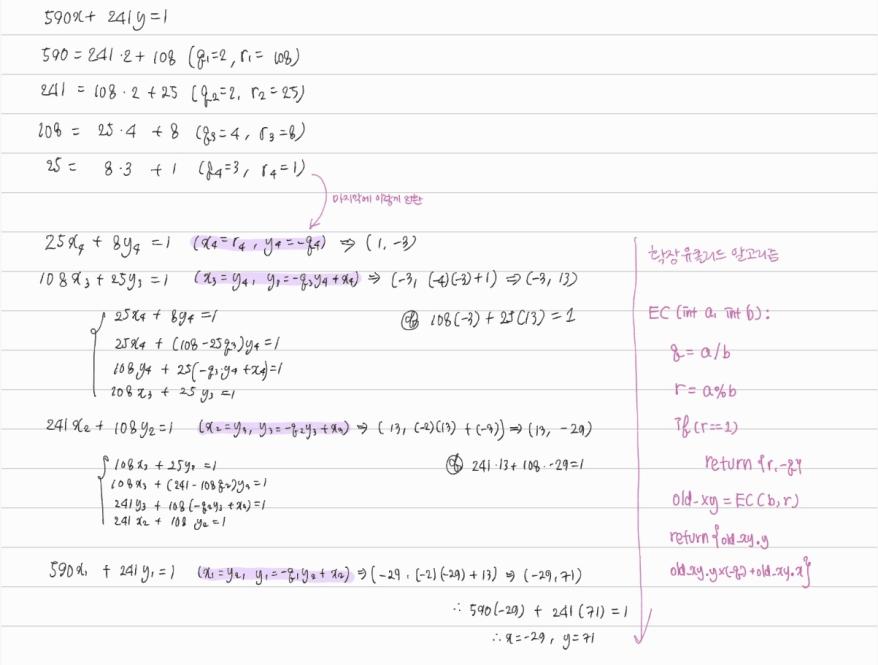 590x + 241y = 1
590 = 241·2 + 108 (q₁=2, r₁= 108)
241 = 108·2 + 25 (q₂=2, r₂=25)
108 = 25·4 + 8 (q₃=4, r₃=8)
25 = 8·3 + 1 (q₄=3, r₄=1)
마지막에 이렇게 변환
25x₄ + 8y₄ = 1 (x₄=r₄, y₄=-q₄) ⇒ (1, -3)
108x₃ + 25y₃ = 1 (x₃=y₄, y₃=-q₃y₄+x₄) ⇒ (-3, (-4)(-3)+1) ⇒ (-3, 13)
25x₄ + 8y₄ = 1
25x₄ + (108-25q₃)y₄ = 1
108y₄ + 25(-q₃y₄+x₄) = 1
108x₃ + 25y₃ = 1
108(-3) + 25(13) = 1
241x₂ + 108y₂ = 1 (x₂=y₃, y₂=-q₂y₃+x₃) ⇒ (13, (-2)(13) + (-3)) ⇒ (13, -29)
108x₃ + 25y₃ = 1
108x₃ + (241-108q₂)y₃ = 1
241y₃ + 108(-q₂y₃+x₃) = 1
241x₂ + 108y₂ = 1
241·13 + 108·-29 = 1
590x₁ + 241y₁ = 1 (x₁=y₂, y₁=-q₁y₂+x₂) ⇒ (-29, (-2)(-29)+13) ⇒ (-29, 71)
∴ 590(-29) + 241(71) = 1
∴ x=-29, y=71
확장 유클리드 알고리즘
EC (int a, int b):
q = a/b
r = a%b
If (r==1)
return {r, -q}
old_xy = EC(b, r)
return {old_xy.y
old_xy.y×(-q)+old_xy.x}